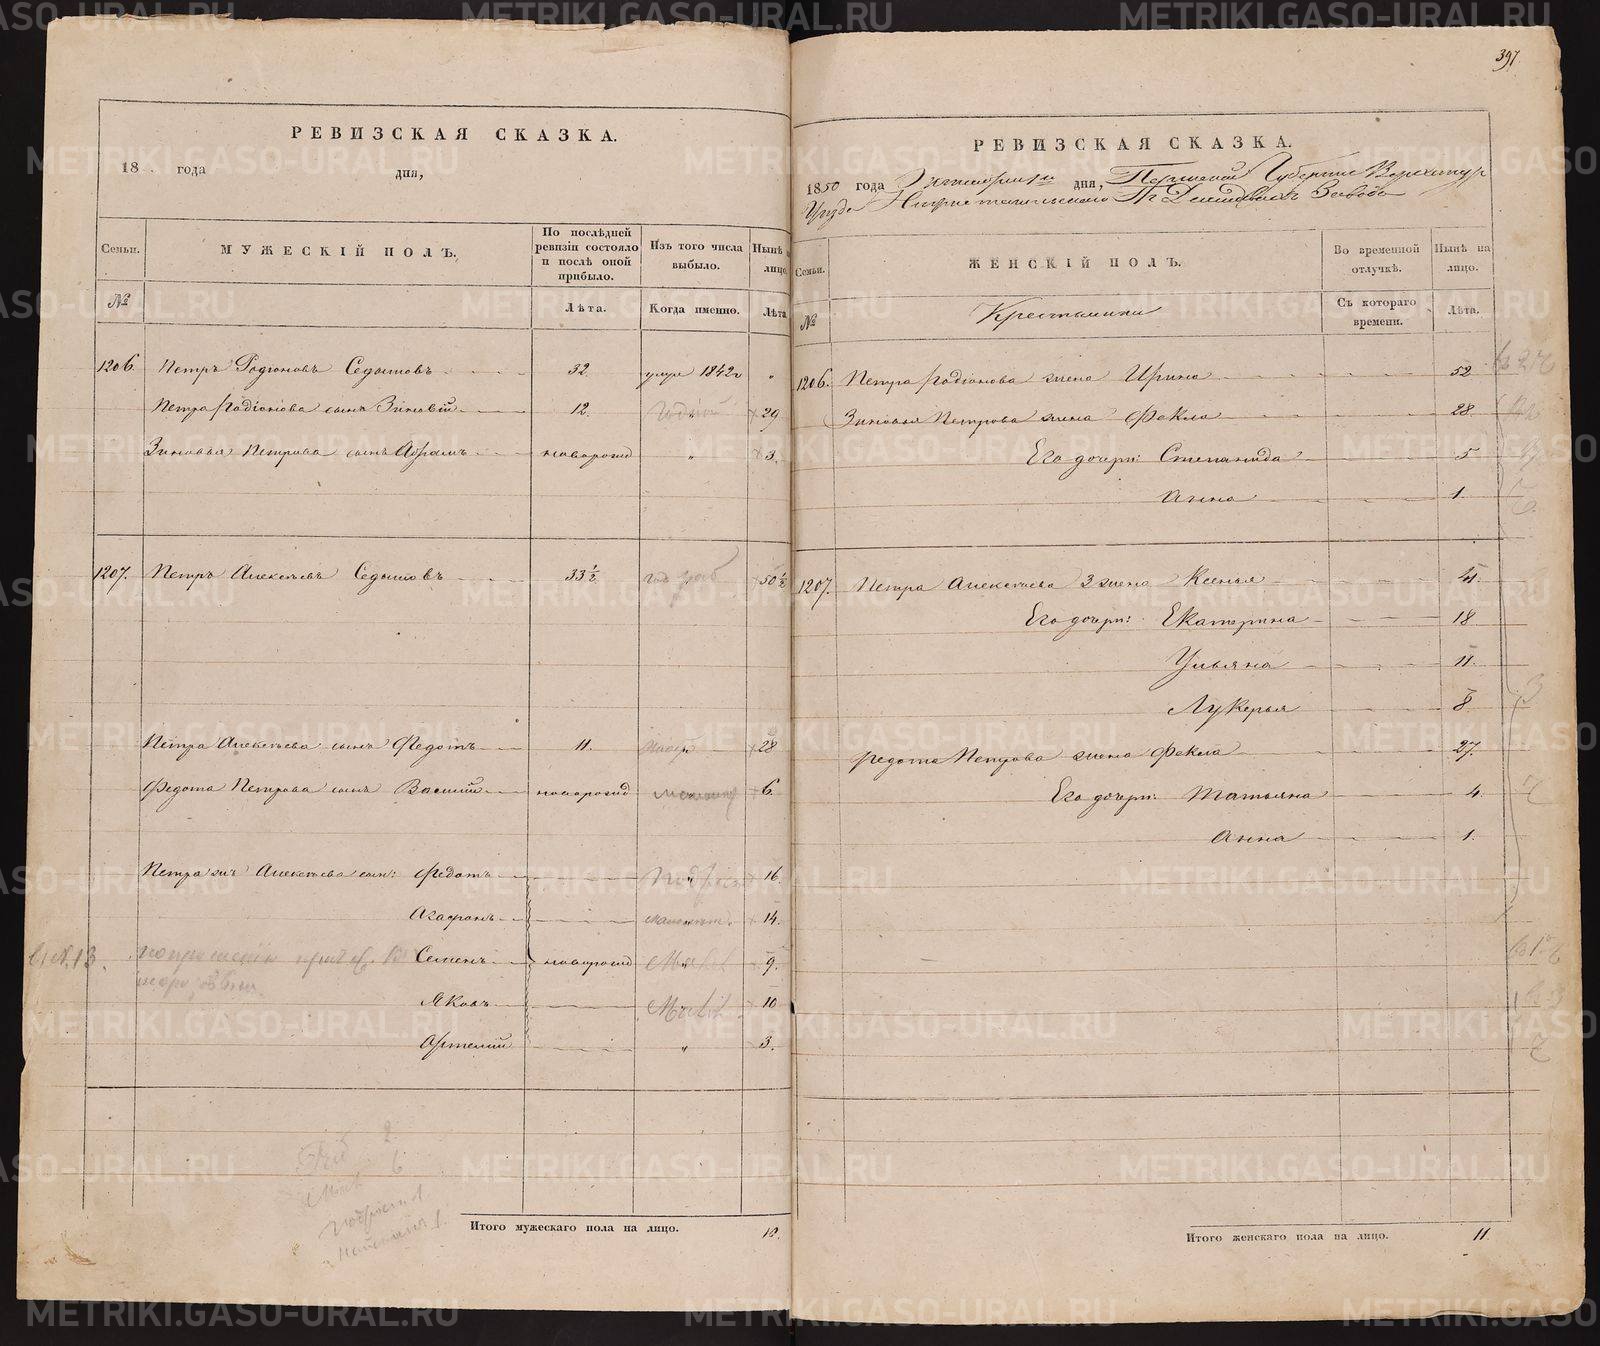 РЕВИЗСКАЯ СКАЗКА.
18 года дня,
Семьи. МУЖЕСКІЙ ПОЛЪ. По послѣдней ревизіи состояло и послѣ оной прибыло. Изъ того числа выбыло. Нынѣ на лицо.
№ Лѣта. Когда именно. Лѣта
1206. Петръ Родіоновъ Седышовъ 32 умре 1842 г "
Петра Родіонова сынъ Зиновій 12. 29
Зиновья Петрова сынъ Абрамъ новорожд " 3.
1207. Петръ Алексѣевъ Седышовъ 33½ 50½
Петра Алексѣева сынъ Федотъ 11. 28
Федота Петрова сынъ Василій новорожд 6.
Петра жъ Алексѣева сын: Федотъ 16.
Агафонъ 14.
Семенъ новорожд 9.
Яковъ 10
Артемій " 3.
Итого мужескаго пола на лицо. 10.
397.
РЕВИЗСКАЯ СКАЗКА.
1850 года дня, Пермской Губерніи Верхотур
Уезда Нижнетагильскаго Гг Демидовыхъ Завода
Семьи. ЖЕНСКІЙ ПОЛЪ. Во временной отлучкѣ. Нынѣ на лицо.
№ Крестьянки Съ котораго времени. Лѣта.
1206. Петра Родіонова жена Ирина 52
Зиновья Петрова жена Фекла 28
Его дочери: Степанида 5
Анна 1.
1207. Петра Алексѣева 3 жена Ксенья 41
Его дочери: Екатерина 18
Ульяна 11.
Лукерья 8
Федота Петрова жена Фекла 27.
Его дочери: Татьяна 4.
Анна 1.
Итого женскаго пола на лицо. 11.
METRIKI.GASO-URAL.RU